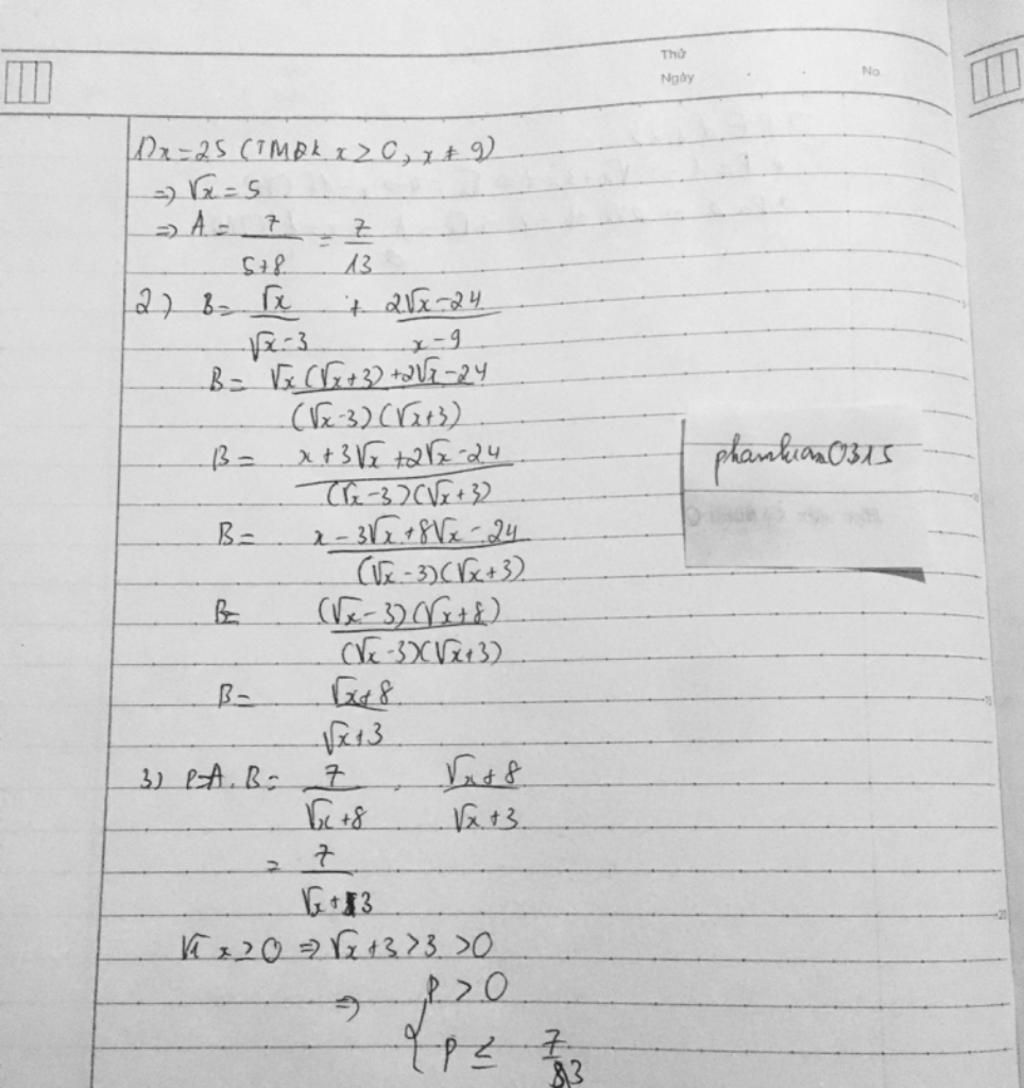 Thứ
Ngày
No.
1) x = 25 (TMĐK x ≥ 0, x ≠ 9)
=> √x = 5
=> A = 7/(5+8) = 7/13
2) B = √x/(√x-3) + (2√x-24)/(x-9)
B = (√x(√x+3)+2√x-24)/((√x-3)(√x+3))
B = (x+3√x+2√x-24)/((√x-3)(√x+3))
B = (x-3√x+8√x-24)/((√x-3)(√x+3))
B = ((√x-3)(√x+8))/((√x-3)(√x+3))
B = (√x+8)/(√x+3)
phamhien0315
3) P=A.B = 7/(√x+8) . (√x+8)/(√x+3)
= 7/(√x+3)
Vì x ≥ 0 => √x+3 > 3 > 0
=> { P > 0
P ≤ 7/3